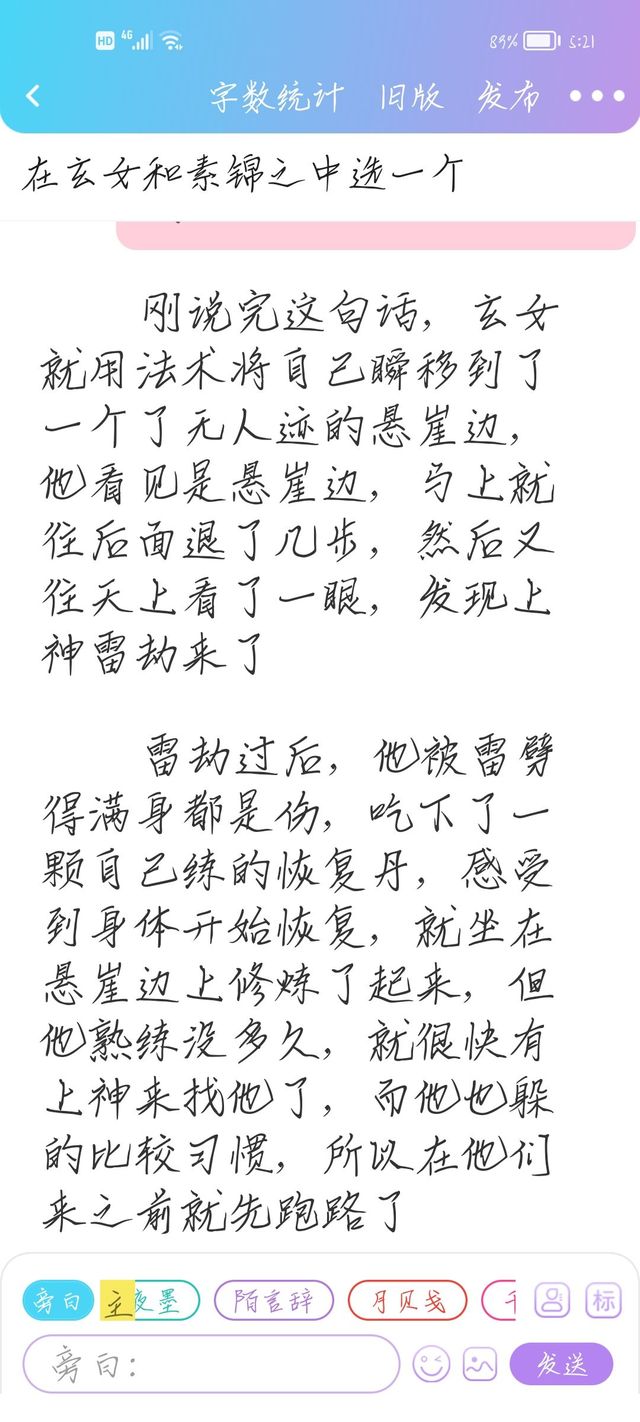 HD 4G 89% 5:21
字数统计 旧版 发布
在玄女和素锦之中选一个
刚说完这句话，玄女
就用法术将自己瞬移到了
一个了无人迹的悬崖边，
他看见是悬崖边，马上就
往后面退了几步，然后又
往天上看了一眼，发现上
神雷劫来了
雷劫过后，他被雷劈
得满身都是伤，吃下了一
颗自己练的恢复丹，感受
到身体开始恢复，就坐在
悬崖边上修炼了起来，但
他熟练没多久，就很快有
上神来找他了，而他也躲
的比较习惯，所以在他们
来之前就先跑路了
旁白 主 夜墨 陌言辞 月贝戋 标
旁白：
发送